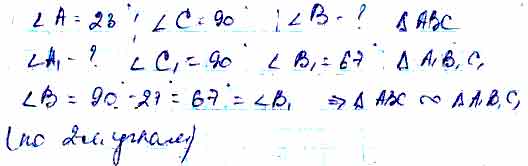 ∠A = 23° ; ∠C = 90° ; ∠B - ? Δ ABC
∠A₁ - ? ∠C₁ = 90° ∠B₁ = 67° Δ A₁B₁C₁
∠B = 90° - 27 = 67° = ∠B₁ ⇒ Δ ABC ∾ Δ A₁B₁C₁
(по 2м углам)